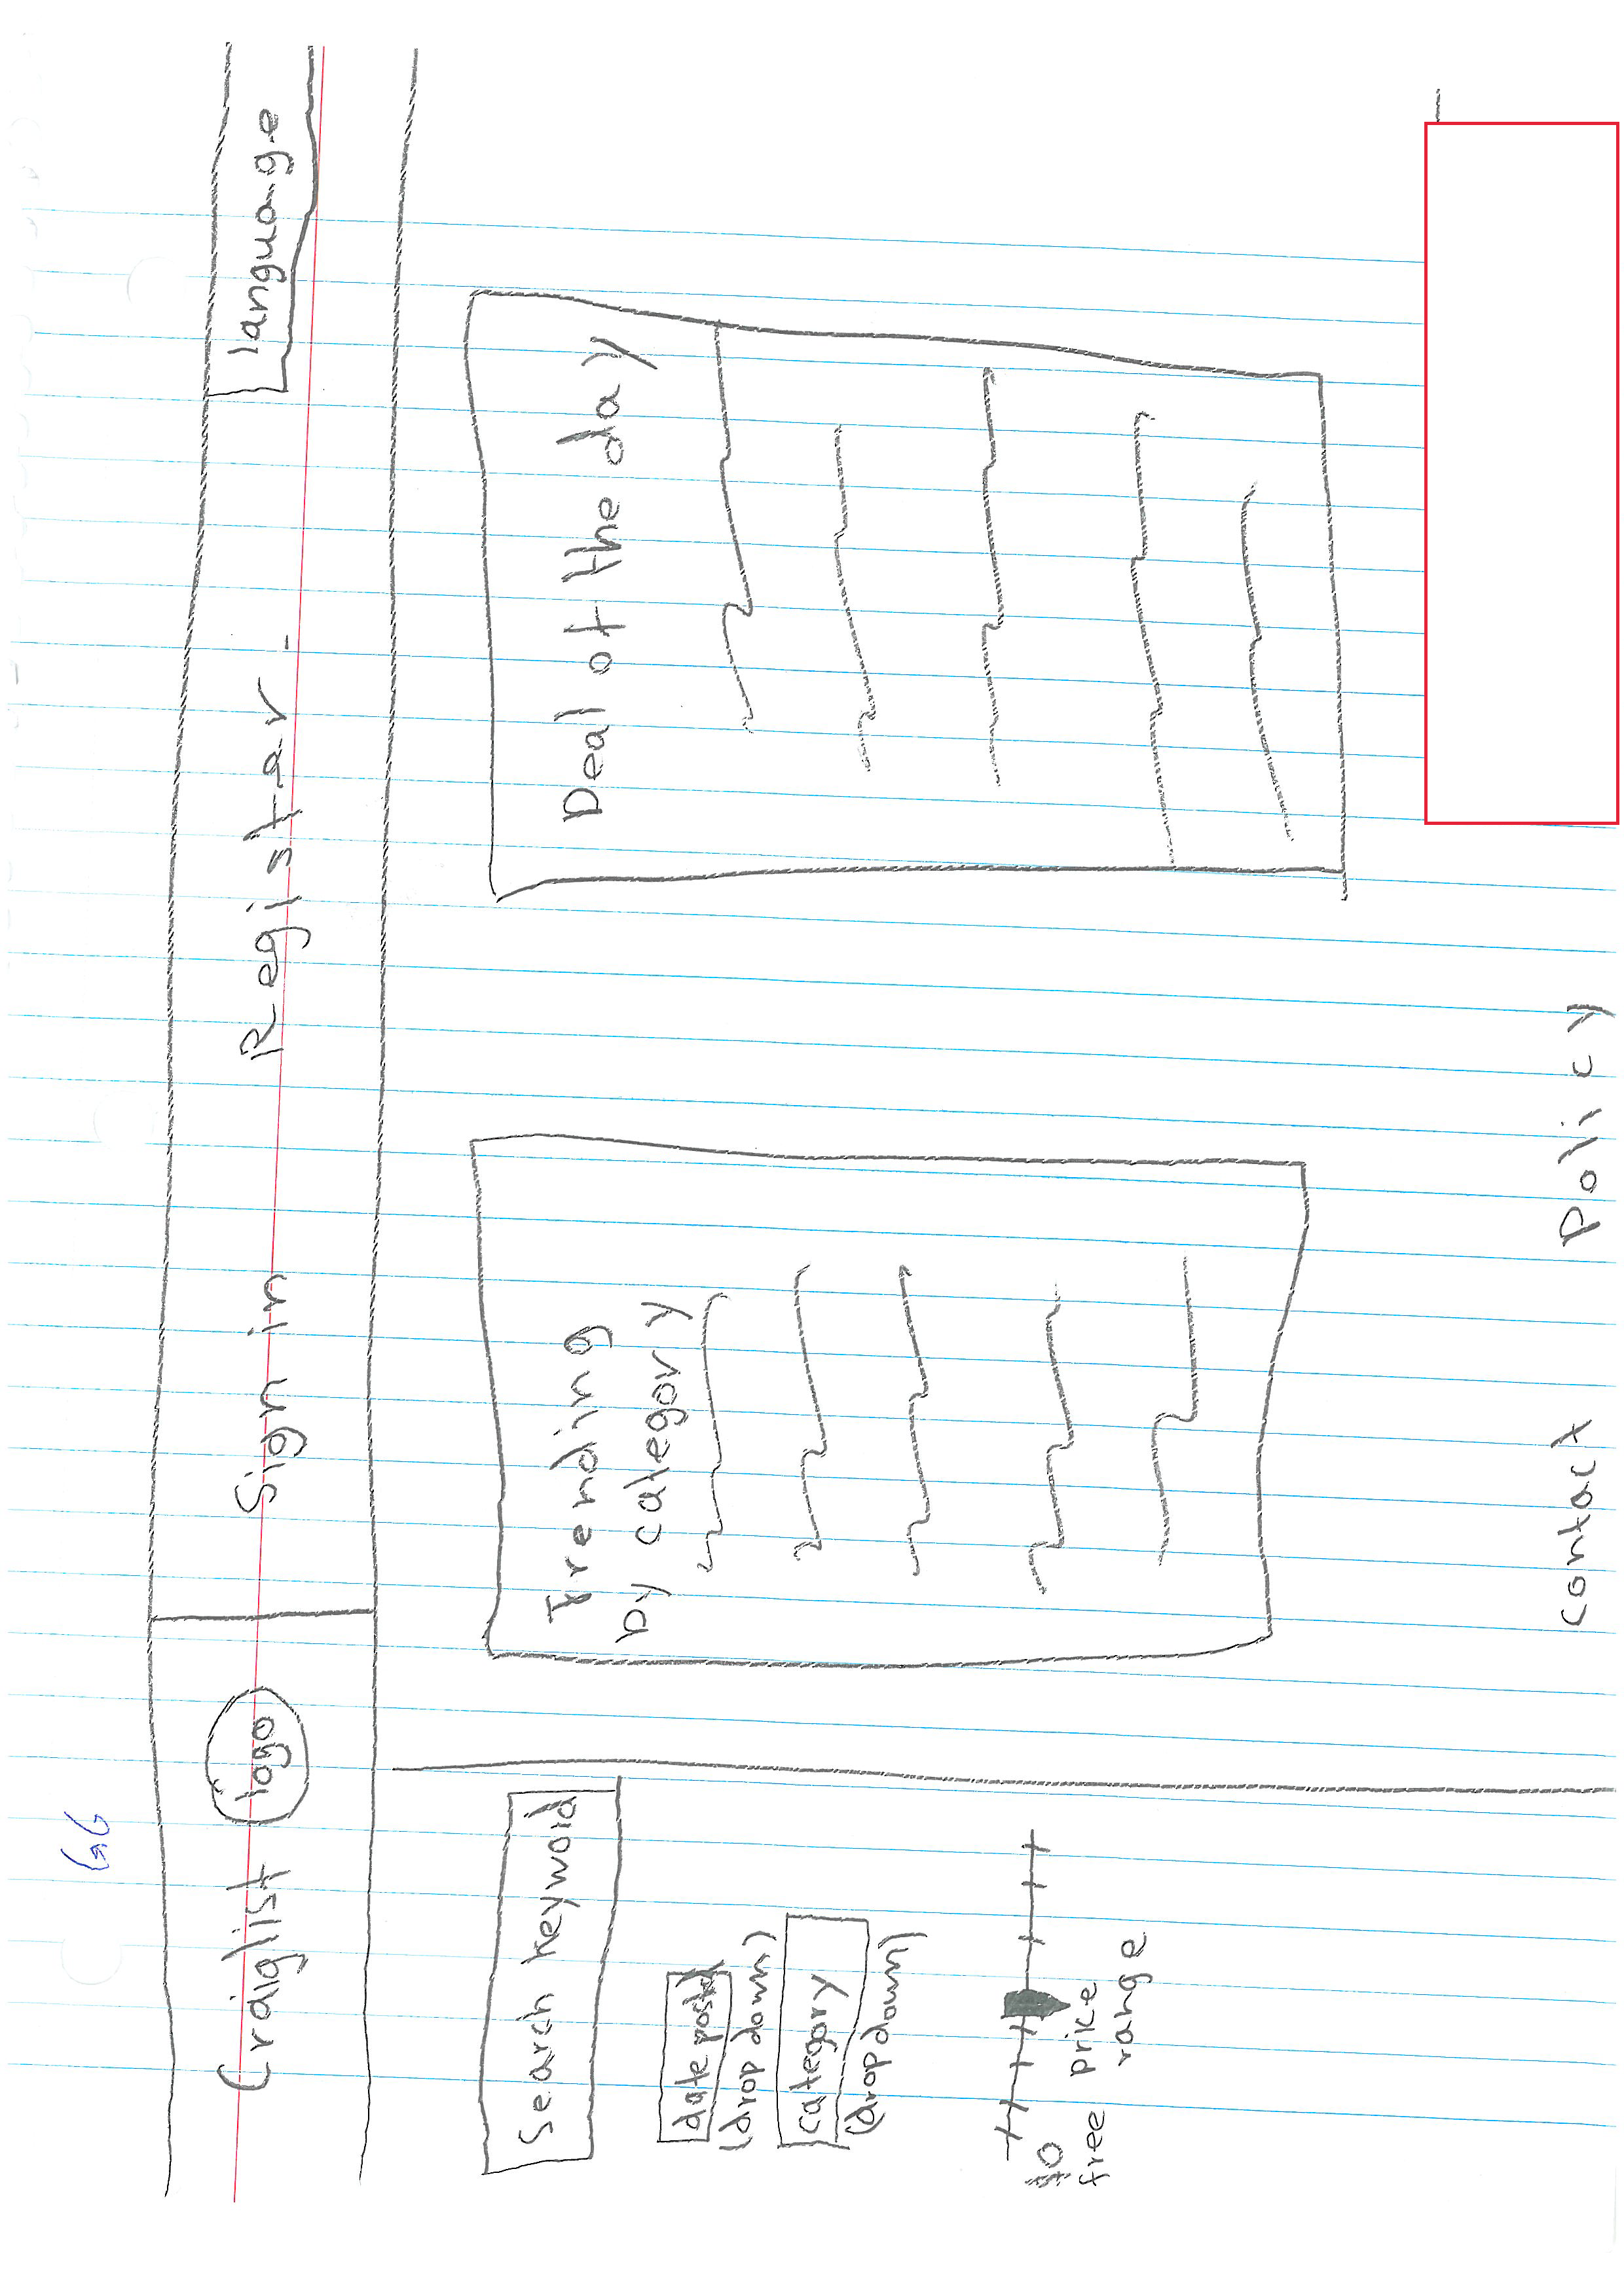 66
Craiglist logo Sign in Registar -
language
Search keyword
date posted
(drop down)
category
(drop down)
$0
free price
range
Trending
by category
Deal of the day
contact Policy